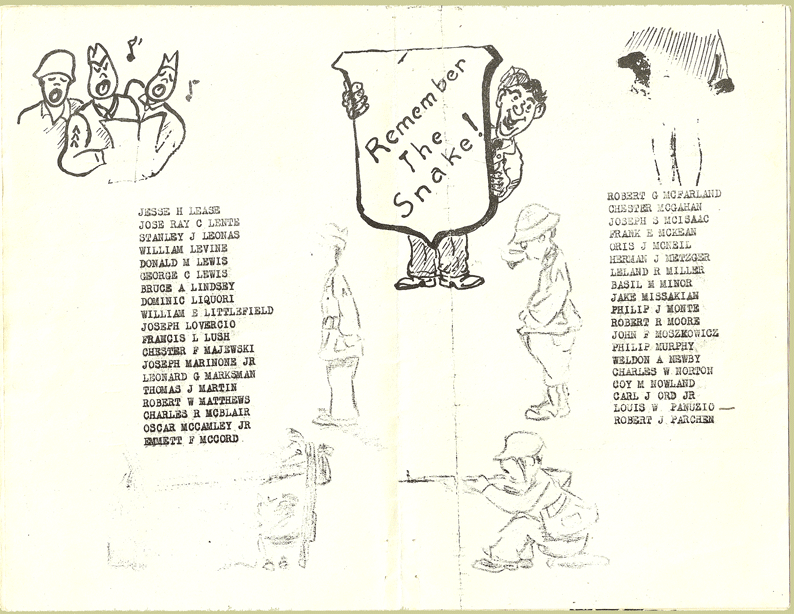 Remember
The
Snake!
JESSE H LEASE
JOSE RAY C LENTE
STANLEY J LEONAS
WILLIAM LEVINE
DONALD M LEWIS
GEORGE C LEWIS
BRUCE A LINDSEY
DOMINIC LIQUORI
WILLIAM E LITTLEFIELD
JOSEPH LOVERCIO
FRANCIS L LUSH
CHESTER F MAJEWSKI
JOSEPH MARINONE JR
LEONARD G MARKSMAN
THOMAS J MARTIN
ROBERT W MATTHEWS
CHARLES R MCBLAIR
OSCAR MCCAMLEY JR
EMMETT F MCCORD
ROBERT G MCFARLAND
CHESTER MCGAHAN
JOSEPH S MCISAAC
FRANK E MCKEAN
ORIS J MCNEIL
HERMAN J METZGER
LELAND R MILLER
BASIL M MINOR
JAKE MISSAKIAN
PHILIP J MONTE
ROBERT R MOORE
JOHN F MOSZKOWICZ
PHILIP MURPHY
WELDON A NEWBY
CHARLES W NORTON
COY M NOWLAND
CARL J ORD JR
LOUIS W PANUZIO
ROBERT J PARCHEN